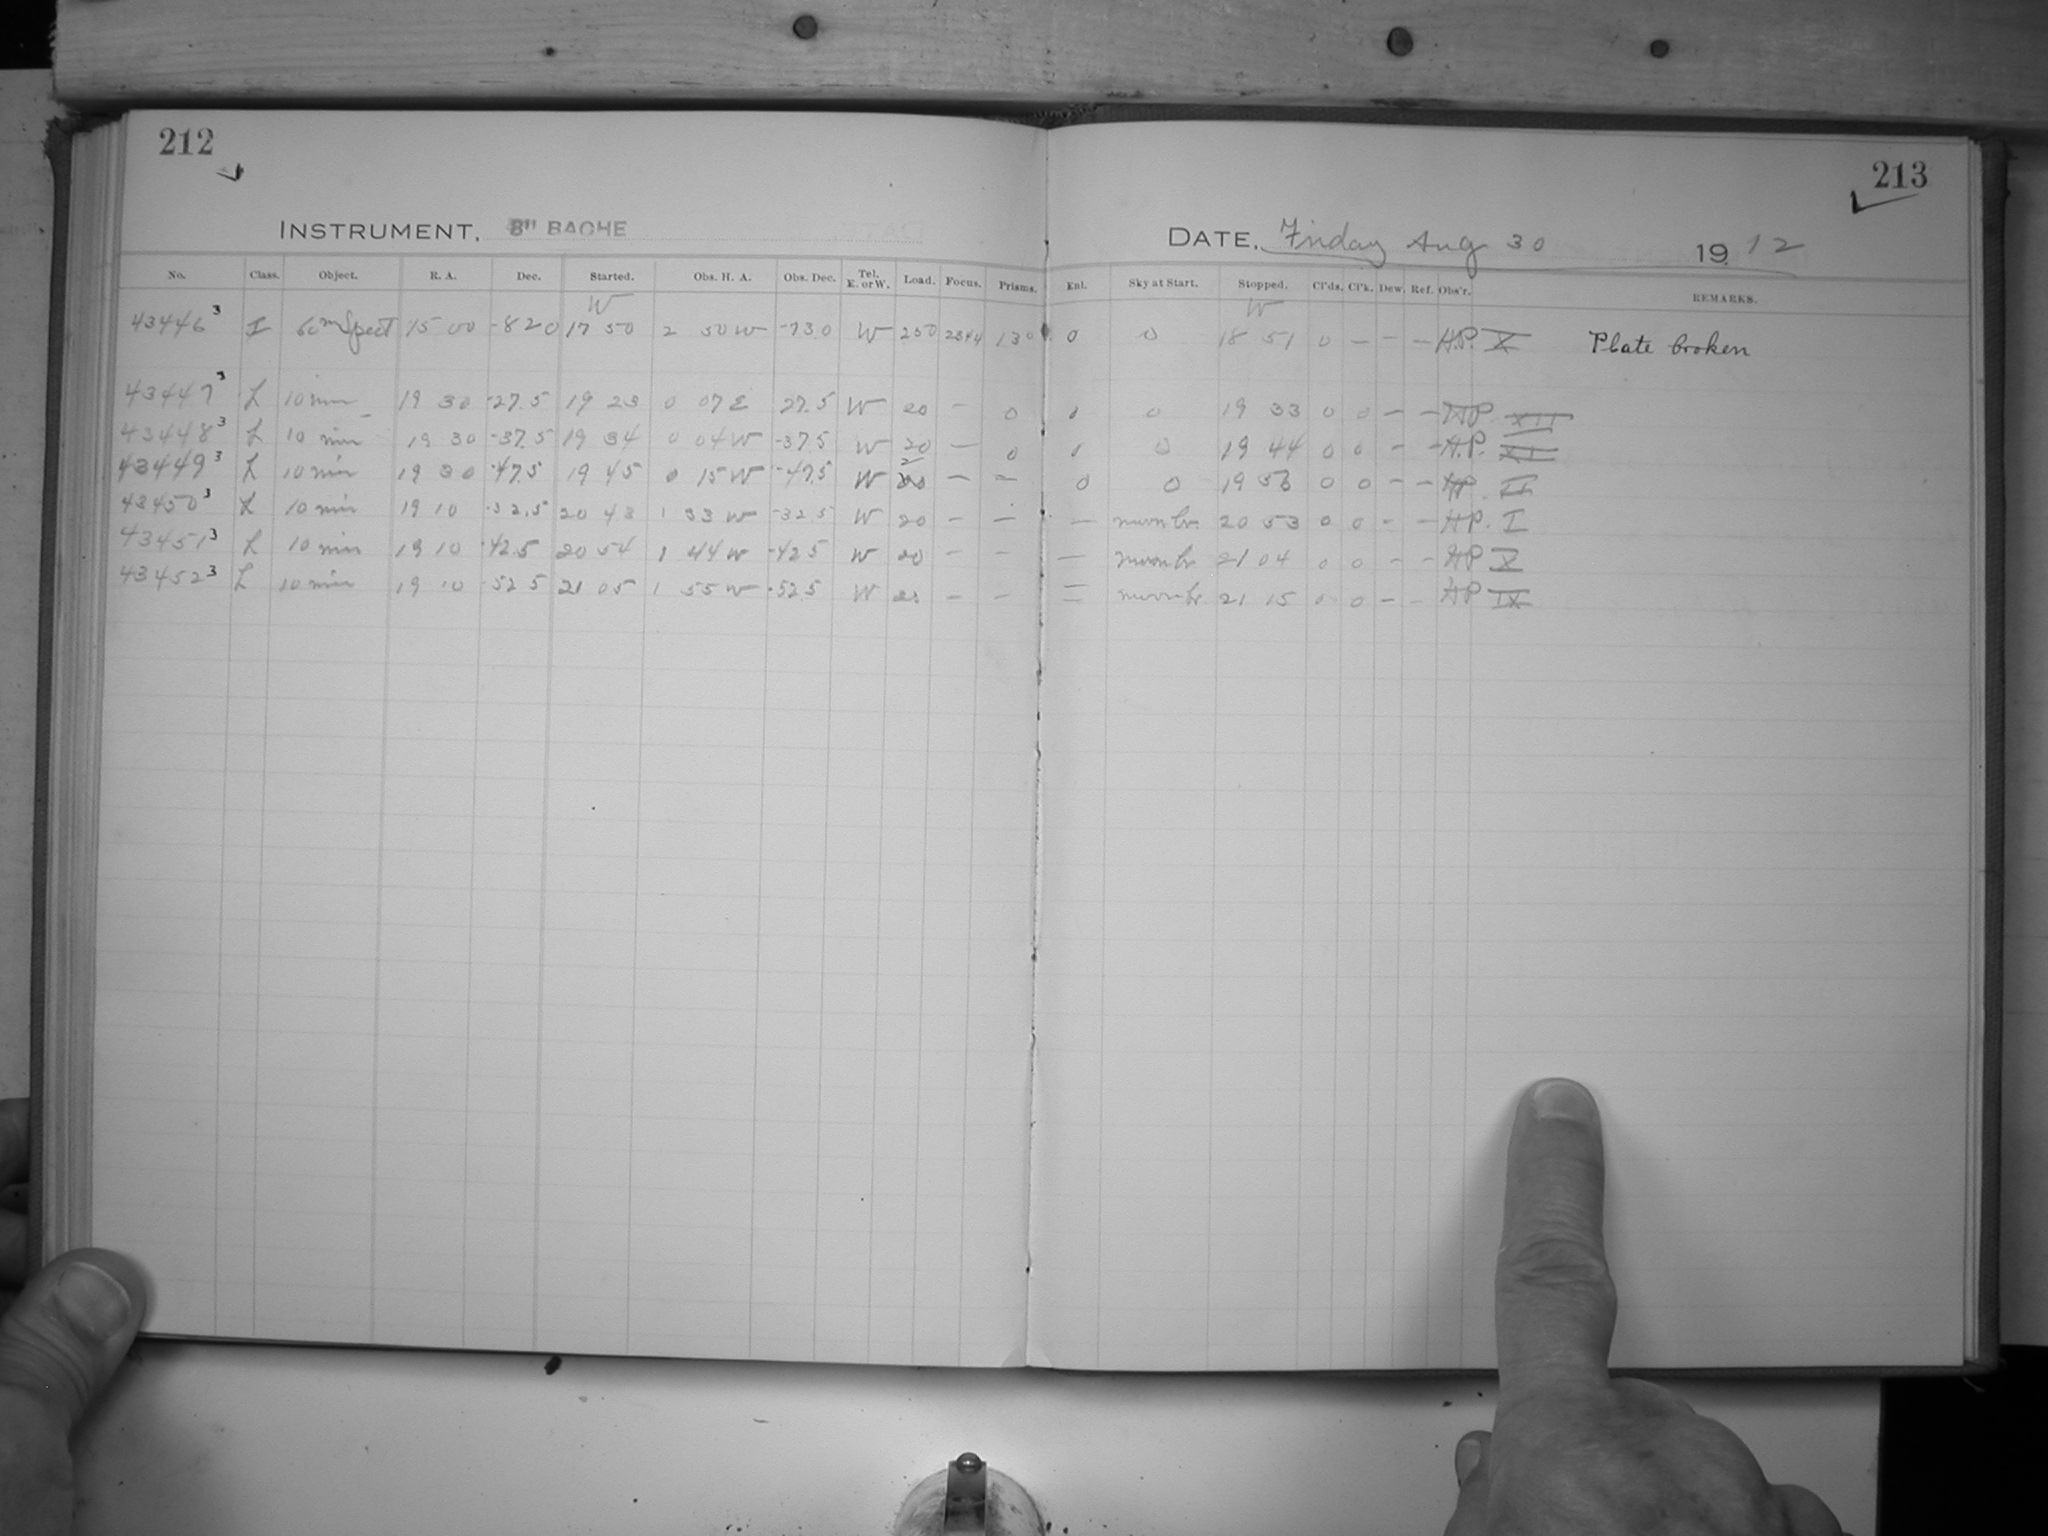 212
213
INSTRUMENT. 8" BACHE
DATE. Friday Aug 30 1912
No. Class. Object. R. A. Dec. Started. Obs. H. A. Obs. Dec. Tel. E. or W. Load. Focus. Prisms. Enl. Sky at Start. Stopped. Cl'ds. Cl'k. Dew. Ref. Obs'r. REMARKS.
W W
43446 3 I 60m Spect 15 00 -820 17 50 2 50 W -730 W 250 2344 130 0 0 18 51 0 — — — H.P. X Plate broken
43447 3 L 10 min 19 30 -27.5 19 23 0 07 E 27.5 W 20 — 0 0 19 33 0 0 — — HP XII
43448 3 L 10 min 19 30 -37.5 19 34 0 04 W -37.5 W 20 — 0 0 19 44 0 0 — — H.P.
43449 3 L 10 min 19 30 -47.5 19 45 0 15 W -47.5 W 20 — — 0 0 19 0 0 — — HP II
43450 3 L 10 min 19 10 -32.5 20 43 1 33 W -32.5 W 20 — — — 20 53 0 0 — — HP. I
43451 3 L 10 min 19 10 -42.5 20 54 1 44 W -42.5 W 20 — — — 21 04 0 0 — — HP X
43452 3 L 10 min 19 10 -52.5 21 05 1 55 W -52.5 W 20 — — — 21 15 0 0 — — HP IX